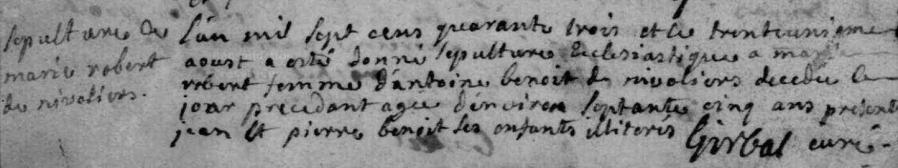 sepulture de
marie robert
de nivoliers.
L'an mil sept cens quarante trois et le trenteunieme
aoust a esté donné sepulture Ecclesiastique a marie
robert femme d'antoine benoit de nivoliers decedée le
jour precedant agée d'enviren septante cinq ans presents
jean et pierre benoit ses enfants illiterés Girbal curé.